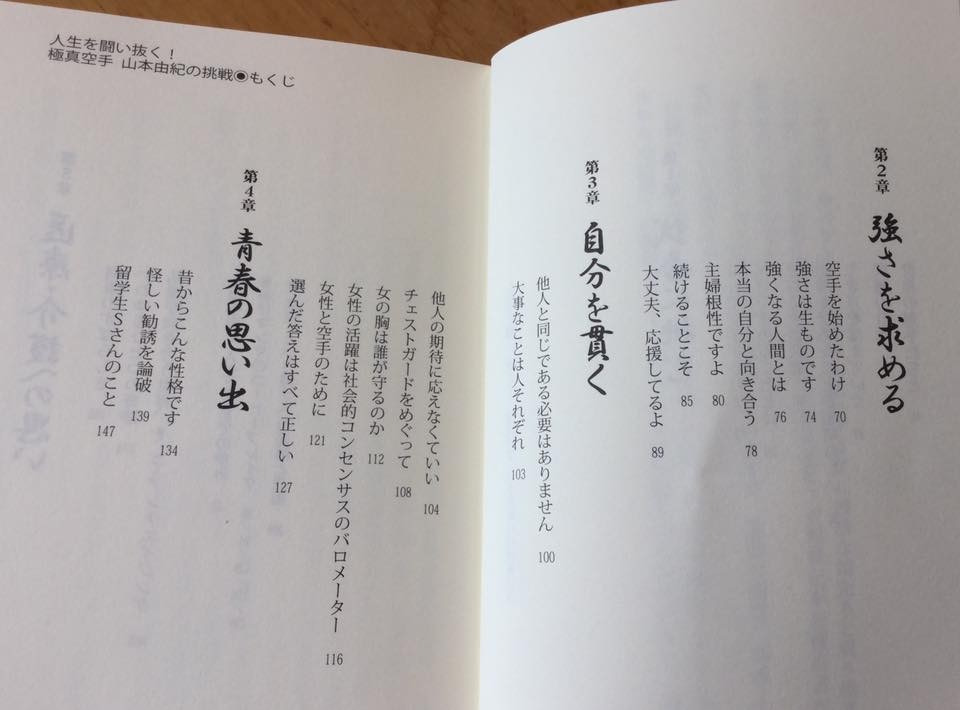 人生を闘い抜く！
極真空手 山本由紀の挑戦◉もくじ
第2章 強さを求める
空手を始めたわけ 70
強さは生ものです 74
強くなる人間とは 76
本当の自分と向き合う 78
主婦根性ですよ 80
続けることこそ 85
大丈夫、応援してるよ 89
第3章 自分を貫く
他人と同じである必要はありません 100
大事なことは人それぞれ 103
他人の期待に応えなくていい 104
チェストガードをめぐって 108
女の胸は誰が守るのか 112
女性の活躍は社会的コンセンサスのバロメーター 116
女性と空手のために 121
選んだ答えはすべて正しい 127
第4章 青春の思い出
昔からこんな性格です 134
怪しい勧誘を論破 139
留学生Ｓさんのこと 147